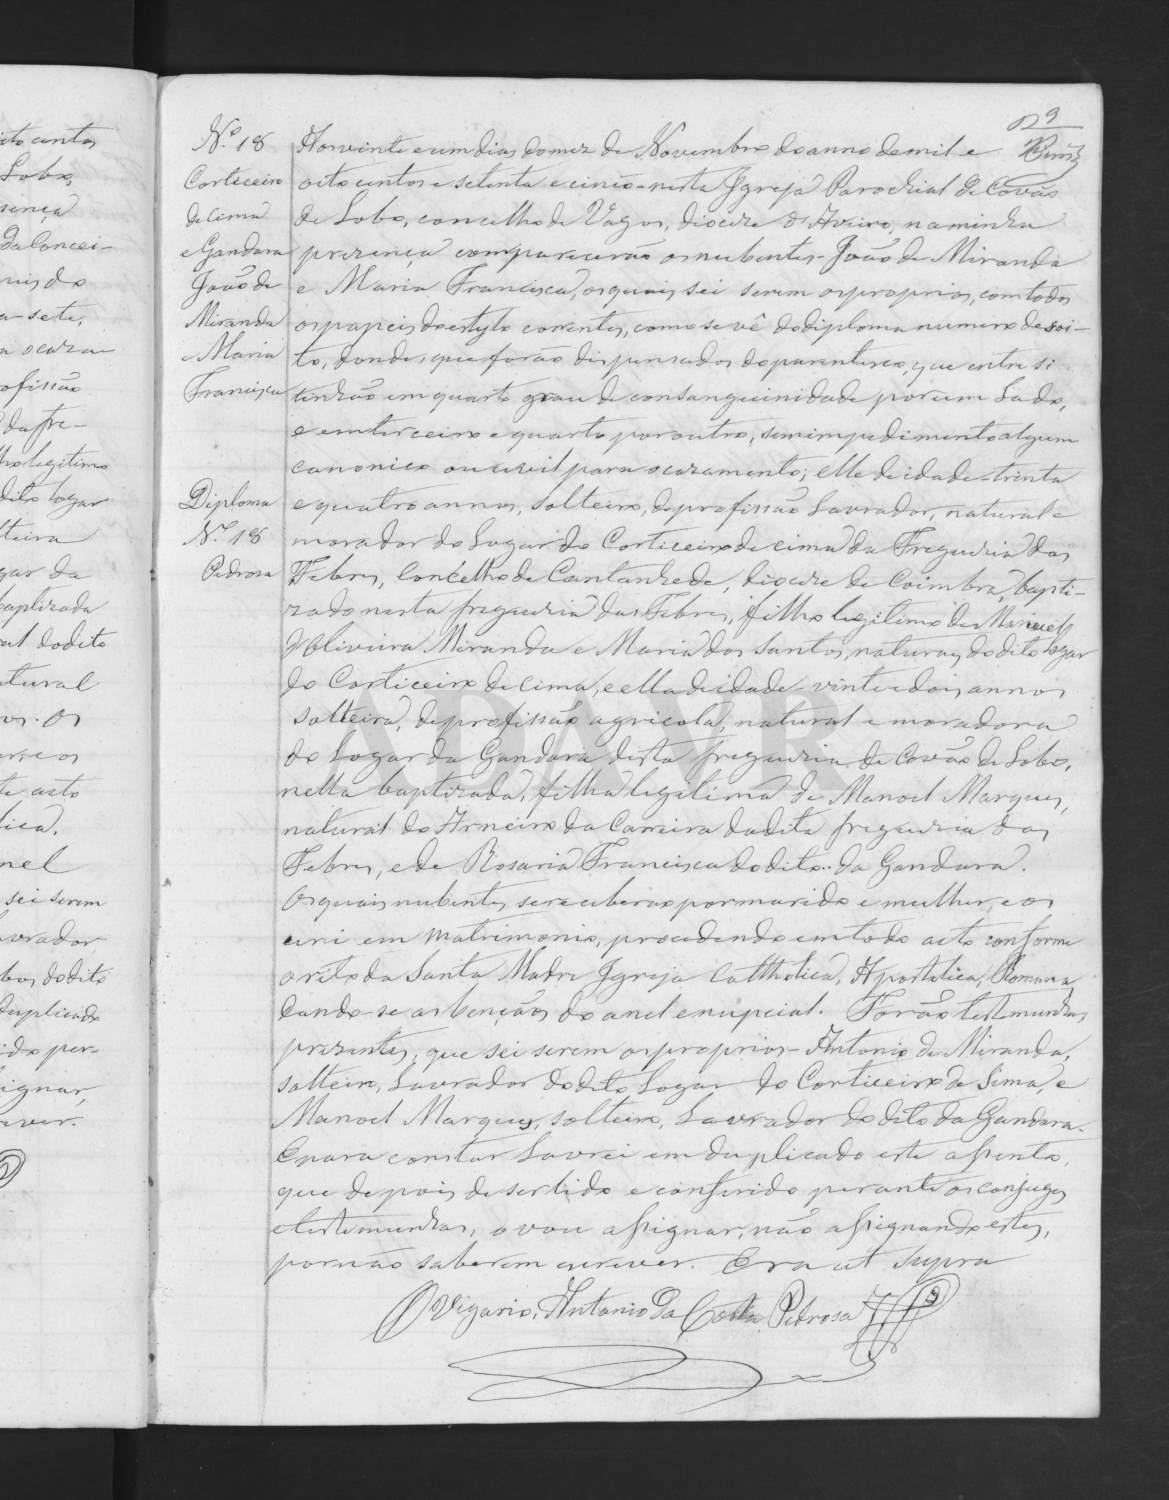 9
N.º 18
Corticeiro
de Cima
e Gandara
João de
Miranda
e Maria
Francisca
Diploma
N.º 18
Pedrosa
Aos vinte e um dias do mez de Novembro do anno de mil e
oito centos e setenta e cinco nesta Igreja Parochial de Covão
de Lobo, concelho de Vagos, diocese d'Aveiro, na minha
prezença comparecerão os nubentes - João de Miranda
e Maria Francisca, os quais sei serem os proprios, com todos
os papeis do estylo correntes, como se vê do diploma numero desoi-
to, donde, que forão dispensados do parentesco, que entre si
tinhão em quarto grau de consanguinidade por um Lado,
e em terceiro e quarto por outro, sem impedimento algum
canonico ou civil para o cazamento; elle de idade trinta
e quatro annos, solteiro, de profissão Lavrador, natural e
morador do Lugar do Corticeiro de cima da Freguezia das
Febres, Concelho de Cantanhede, diocese de Coimbra, bapti-
zado nesta freguezia das Febres, filho legitimo de Manuel
d'Oliveira Miranda e Maria dos Santos, naturaes do dito logar
do Corticeiro de Cima, e ella de idade vinte e dois annos
solteira, de profissão agricola, natural e moradora
do Logar da Gandara desta freguezia de Covão de Lobo,
nella baptizada, filha legitima de Manoel Marques,
natural do Arneiro da Carreira da dita freguezia das
Febres, e de Rosaria Francisca do dito da Gandara.
Os quais nubentes se receberão por marido e mulher, e os
uni em matrimonio, procedendo em todo acto conforme
o rito da Santa Madre Igreja Catholica, Apostolica, Romana,
dando-se as bençãos do anel e nupcial. Forão testemunhas
prezentes, que sei serem os proprios - Antonio de Miranda,
solteiro, Lavrador do dito Logar do Corticeiro de Sima, e
Manoel Marques, solteiro, Lavrador do dito da Gandara.
E para constar Lavrei em duplicado este assento,
que depois de ser lido e conferido perante os conjuges
e testemunhas, o vou assignar, não assignando estes,
por não saberem escrever. Era ut supra
O Vigario, Antonio da Costa Pedrosa